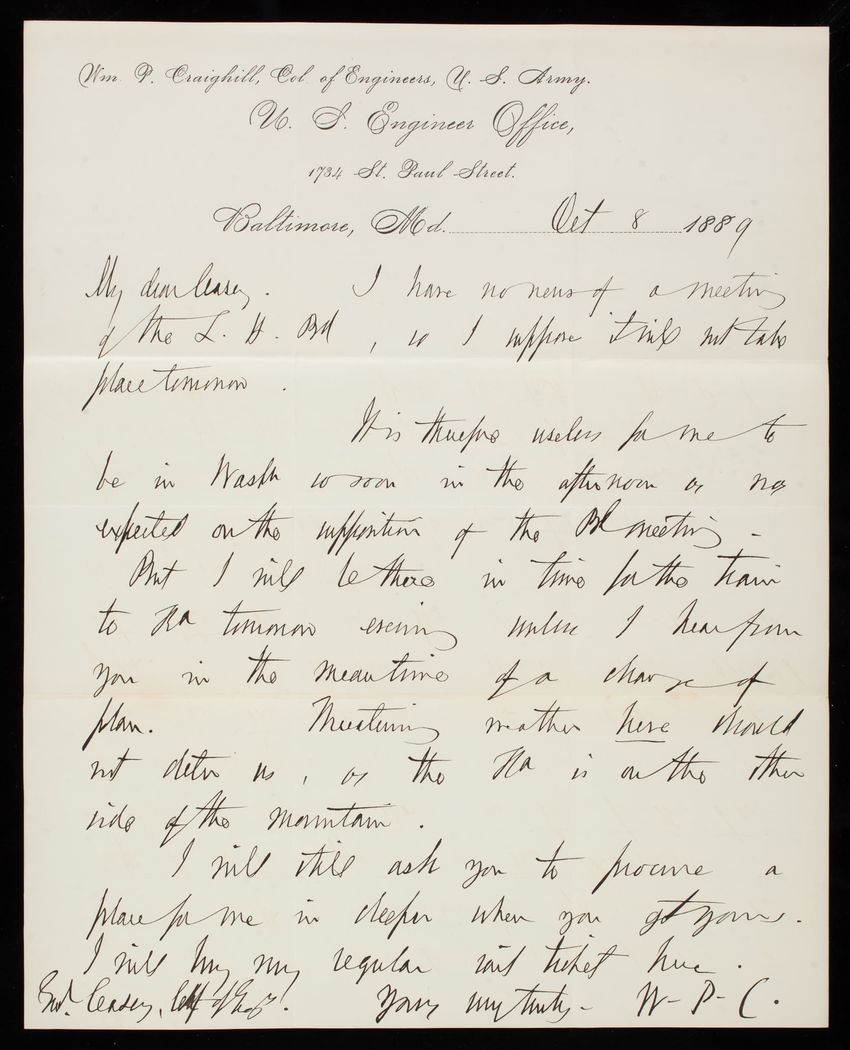 Wm. P. Craighill, Col. of Engineers, U. S. Army.
U. S. Engineer Office,
1734 St. Paul Street.
Baltimore, Md. Oct 8 1889
My dear Casey. I have no news of a meeting
of the L. H. Bd, so I suppose it will not take
place tomorrow.
It is therefore useless for me to
be in Wash so soon in the afternoon as was
expected on the supposition of the Bd meeting -
But I will be there in time for the train
to tomorrow evening unless I hear from
you in the meantime of a change of
plan. Threatening weather here should
not deter us, as the is on the other
side of the mountain.
I will still ask you to procure a
place for me in sleeper when you get yours.
I will buy my regular rail ticket here.
Genl. Casey, Chf of Engrs. Yours very truly - W- P- C.